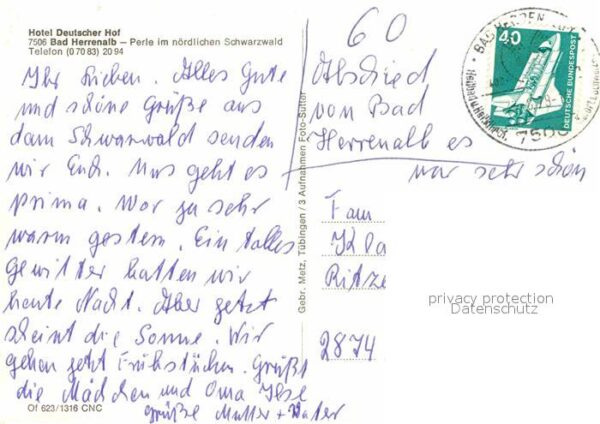 Hotel Deutscher Hof
7506 Bad Herrenalb – Perle im nördlichen Schwarzwald
Telefon (0 70 83) 20 94
Ihr Lieben. Alles Gute
und schöne Grüße aus
dem Schwarzwald senden
wir Euch. Uns geht es
prima. War ja sehr
warm gestern. Ein tolles
Gewitter hatten wir
heute Nacht. Aber jetzt
scheint die Sonne. Wir
gehen jetzt Frühstücken. Grüßt
die Mädchen und Oma Ilse
Grüße Mutter + Vater
Of 623/1316 CNC
Gebr. Metz, Tübingen / 3 Aufnahmen Foto-Suttor
60
Abschied
von Bad
Herrenalb es
war sehr schön
Fam
Kla
Ritze
2874
40
DEUTSCHE BUNDESPOST
BAD HERRENALB
7506
privacy protection
Datenschutz